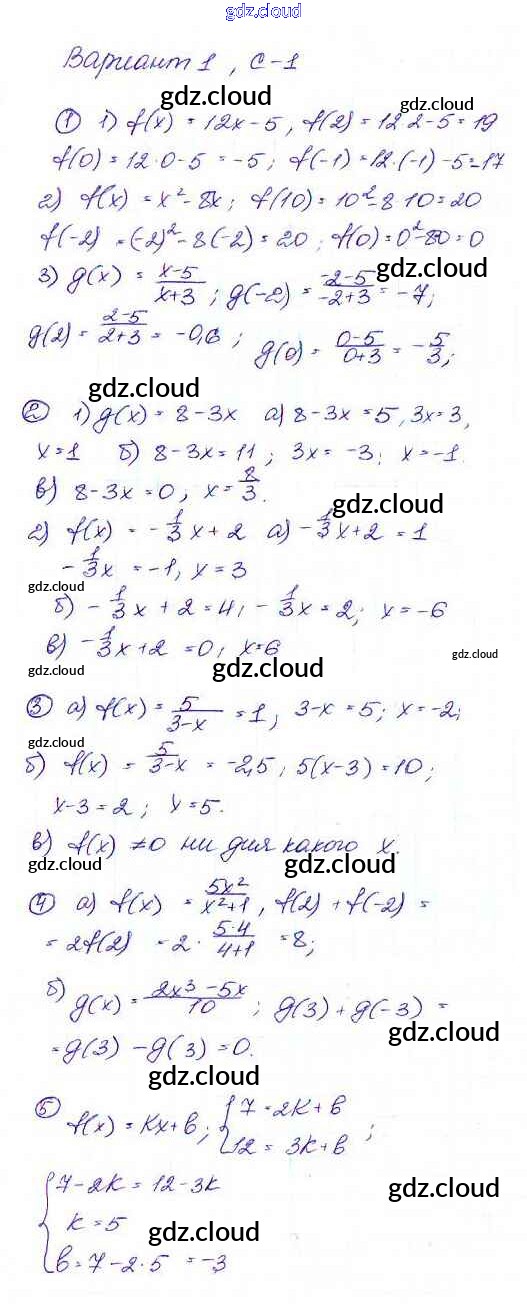 gdz.cloud
gdz.cloud
Вариант 1, С-1
gdz.cloud
① 1) f(x) = 12x-5, f(2) = 12·2-5 = 19
f(0) = 12·0-5 = -5; f(-1) = 12·(-1)-5=-17
gdz.cloud
2) f(x) = x²-8x; f(10) = 10²-8·10=20
f(-2) = (-2)²-8(-2) = 20; f(0)=0²-80=0
gdz.cloud
3) g(x) = \frac{x-5}{x+3}; g(-2) = \frac{-2-5}{-2+3} = -7;
g(2) = \frac{2-5}{2+3} = -0,6; g(0) = \frac{0-5}{0+3} = -\frac{5}{3};
gdz.cloud
② 1) g(x) = 8-3x а) 8-3x = 5, 3x = 3,
x=1 б) 8-3x = 11; 3x = -3; x=-1.
в) 8-3x=0, x=\frac{8}{3}.
gdz.cloud
2) f(x) = -\frac{1}{3}x+2 а) -\frac{1}{3}x+2 = 1
-\frac{1}{3}x = -1, x=3
gdz.cloud
б) -\frac{1}{3}x+2=4, -\frac{1}{3}x=2; x=-6
в) -\frac{1}{3}x+2=0, x=6
gdz.cloud
gdz.cloud
gdz.cloud
③ а) f(x) = \frac{5}{3-x} = 1, 3-x = 5; x=-2;
gdz.cloud
б) f(x) = \frac{5}{3-x} = -2,5, 5(x-3) = 10;
x-3=2; x=5.
в) f(x) ≠ 0 ни для какого x.
gdz.cloud
gdz.cloud
④ а) f(x) = \frac{5x²}{x²+1}, f(2)+f(-2) =
= 2f(2) = 2·\frac{5·4}{4+1} = 8;
б) g(x) = \frac{2x³-5x}{10}; g(3)+g(-3) =
gdz.cloud
= g(3) - g(3) = 0.
gdz.cloud
⑤ f(x) = kx+b; { 7 = 2k+b
12 = 3k+b ;
{ 7-2k = 12-3k
gdz.cloud
k = 5
gdz.cloud
b = 7-2·5 = -3